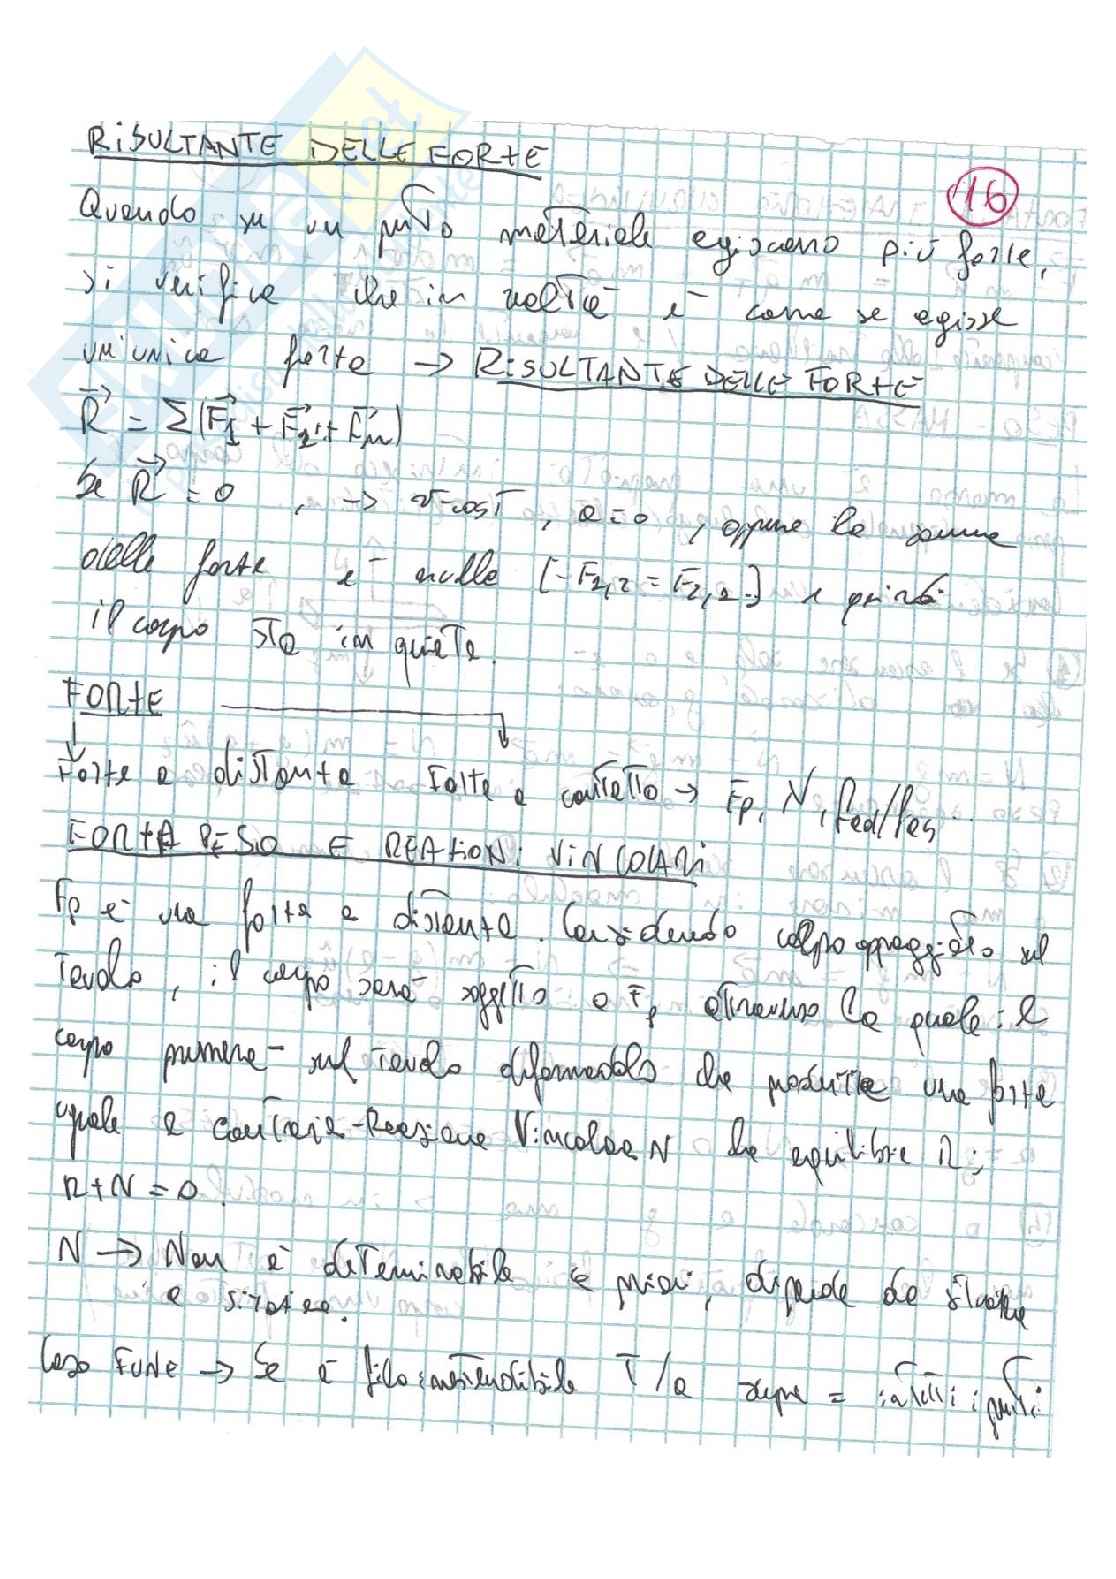 RISULTANTE DELLE FORZE
16
Quando su un punto materiale agiscono più forze,
si verifica che in realtà è come se agisse
un'unica forza → RISULTANTE DELLE FORZE
R⃗ = Σ(F⃗1 + F⃗2 + F⃗n)
Se R⃗ = 0 , → v=cost, a=0, oppure la somma
delle forze è nulla [-F = F] e quindi
il corpo sta in quiete.
FORZE
Forze a distanza Forze a contatto → Fp, N, Fed/Fes
FORZA PESO E REAZIONI VINCOLARI
Fp è una forza a distanza. Considerando corpo appoggiato sul
tavolo, il corpo sarà soggetto a Fp attraverso la quale il
corpo premerà sul tavolo deformandolo che produrrà una forza
uguale e contraria-Reazione Vincolare N che equilibra R;
R+N=0.
N → Non è determinabile a priori, dipende da situazione
a situazione.
Caso FUNE → Se è filo inestendibile T/a sempre = in tutti i punti